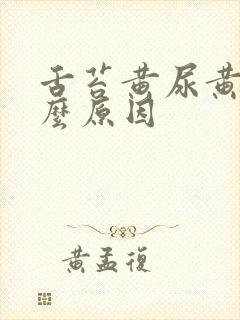 舌苔黄尿黄
麼原因
黄孟復